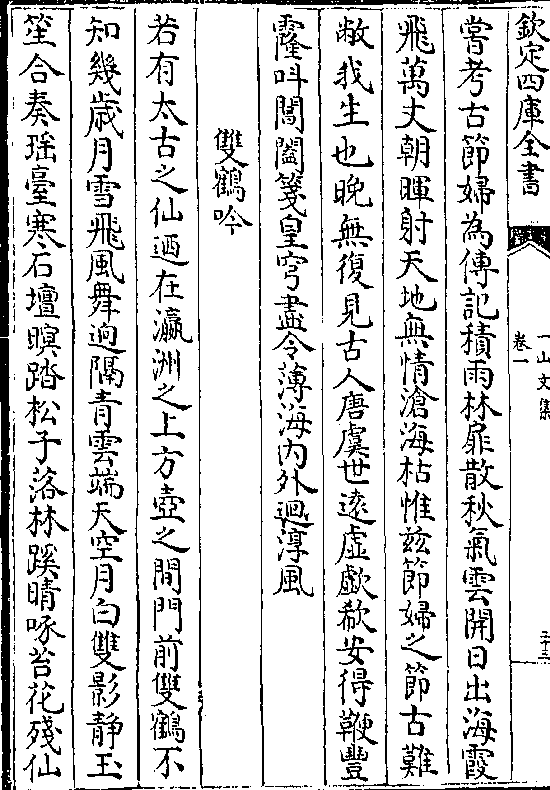 欽定四庫全書
一山文集
卷一
二十三
嘗考古節婦為傳記積雨林扉散秋氣雲開日出海霞
飛萬丈朝暉射天地無情滄海枯惟兹節婦之節古難
敝我生也晚無復見古人唐虞世逺虛歔欷安得鞭豐
霳叫閶闔箋皇穹盡令薄海内外迴淳風
雙鶴吟
若有太古之仙迺在瀛洲之上方壺之間門前雙鶴不
知幾歳月雪飛風舞逈隔青雲端天空月白雙影静玉
笙合奏瑶臺寒石壇暝踏松子落林蹊晴啄苔花殘仙